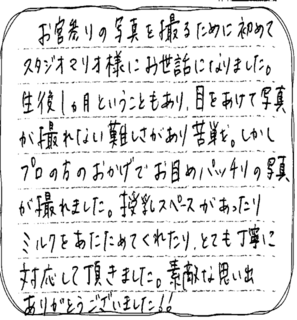 お宮参りの写真を撮るために初めて
スタジオマリオ様にお世話になりました。
生後1ヵ月ということもあり、目をあけて写真
が撮れない難しさがあり苦戦を。しかし
プロの方のおかげでお目めパッチリの写真
が撮れました。授乳スペースがあったり
ミルクをあたためてくれたり、とても丁寧に
対応して頂きました。素敵な思い出
ありがとうございました!!